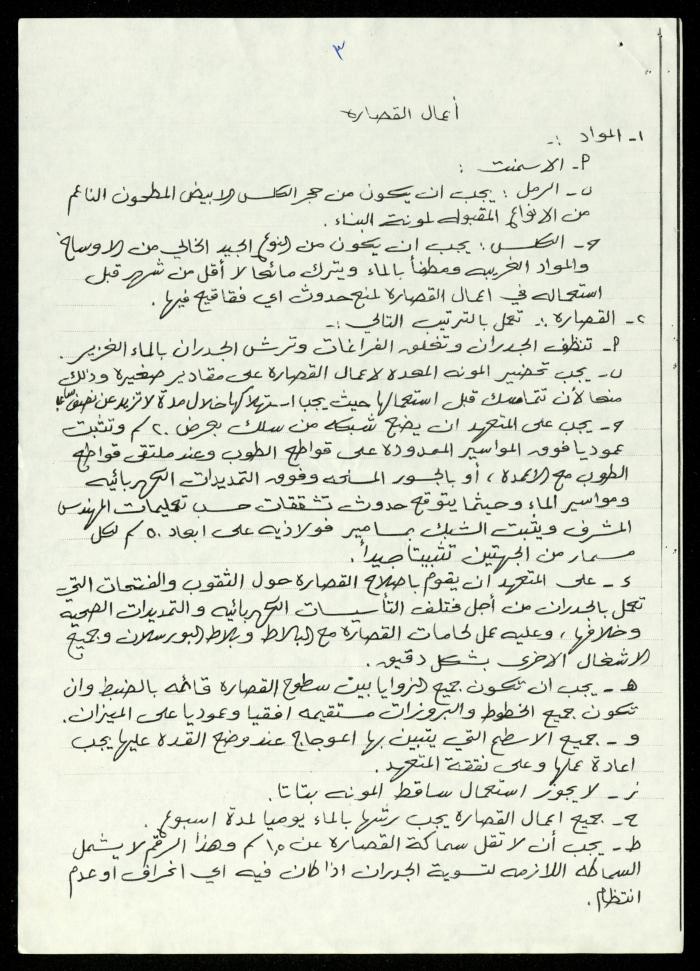 ٣
أعمال القصاره
١- المواد :-
أ- الاسمنت :
ب- الرمل : يجب ان يكون من حجر الكلس الابيض المطحون الناعم
من الانواع المقبوله لمونة البناء .
جـ- الكلس : يجب ان يكون من النوع الجيد الخالي من الاوساخ
والمواد الغريبه ومطفأ بالماء ويترك مائحا لا أقل من شهر قبل
استعماله في اعمال القصارة لمنع حدوث اي فقاقيع فيها .
٢- القصاره :- تعمل بالترتيب التالي :-
أ- تنظف الجدران وتغلق الفراغات وترش الجدران بالماء الغزير .
ب- يجب تحضير المونه المعده لاعمال القصارة على مقادير صغيرة وذلك
منعا لأن تتماسك قبل استعمالها حيث يجب استهلاكها خلال مدة لا تزيد عن نصف ساعة
جـ- يجب على المتعهد ان يضع شبكه من سلك بعرض ٢٠ سم وتثبت
عموديا فوق المواسير الممدودة على قواطع الطوب وعند ملتقى قواطع
الطوب مع الاعمدة ، أو بالجسور المسلحه وفوق التمديدات الكهربائيه
ومواسير الماء وحيثما يتوقع حدوث تشققات حسب تعليمات المهندس
المشرف ويثبت الشبك بمسامير فولاذيه على ابعاد ٥٠ سم لكل
مسمار من الجهتين تثبيتا جيداً .
د - على المتعهد ان يقوم باصلاح القصارة حول الثقوب والفتحات التي
تعمل بالجدران من أجل مختلف التأسيسات الكهربائيه والتمديدات الصحية
وخلافها ، وعليه عمل لحامات القصارة مع البلاط وبلاط البورسلان وجميع
الاشغال الاخرى بشكل دقيق .
هـ - يجب ان تكون جميع الزوايا بين سطوح القصارة قائمه بالضبط وان
تكون جميع الخطوط والبروزات مستقيمه افقيا وعموديا على الميزان .
و - جميع الاسطح التي يتبين بها اعوجاج عند وضع القدة عليها يجب
اعادة عملها وعلى نفقة المتعهد .
ز - لا يجوز استعمال ساقط المونه بتاتا .
ح - جميع اعمال القصارة يجب رشها بالماء يوميا لمدة اسبوع .
ط - يجب أن لا تقل سماكة القصارة عن ١,٥ سم وهذا الرقم لا يشمل
السماكه اللازمه لتسوية الجدران اذا كان فيه اي انحراف او عدم
انتظام .